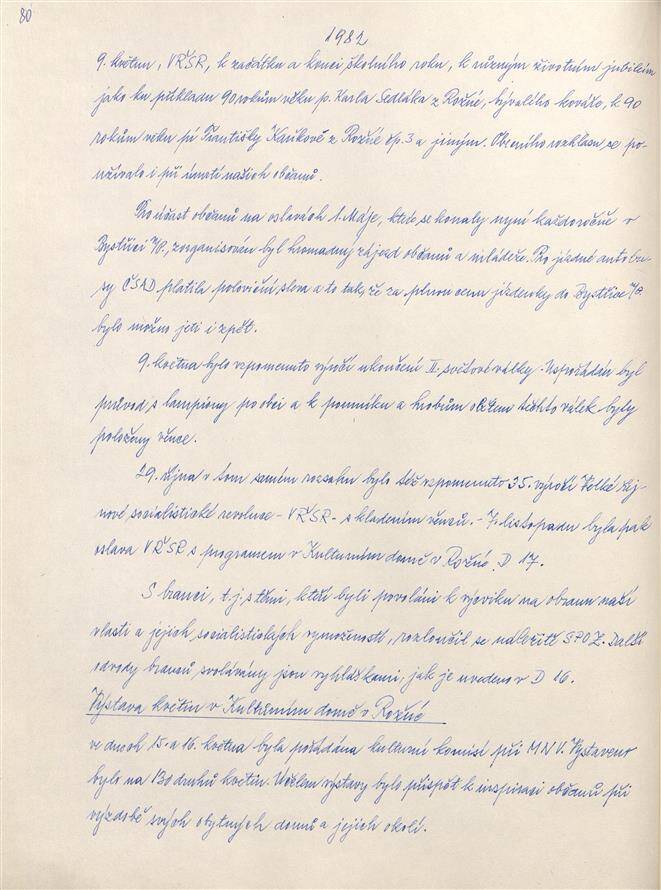 80
1982
9. květnu, VŘSR, k začátku a konci školního roku, k různým životním jubileím
jako ku příkladu 90 rokům věku p. Karla Sedláka z Rožné, bývalého kováře, k 90
rokům věku pí Františky Kaňkové z Rožné čp. 3 a jiným. Obecního rozhlasu se po-
užívalo i při úmrtí našich občanů.
Pro účast občanů na oslavách 1. Máje, které se konaly nyní každoročně v
Bystřici n/P., zorganisován byl hromadný zájezd občanů a mládeže. Pro jízdné autobu-
sy ČSAD platila poloviční sleva a to tak, že za plnou cenu jízdenky do Bystřice n/P
bylo možno jeti i zpět.
9. května bylo vzpomenuto výročí ukončení II. světové války. Uspořádán byl
průvod s lampiony po obci a k pomníku a hrobům obětem těchto válek byly
položeny věnce.
29. října v tom samém rozsahu bylo též vzpomenuto 35. výročí Velké říj-
nové socialistické revoluce - VŘSR - s kladením věnců. - 7. listopadu byla pak
oslava VŘSR s programem v Kulturním domě v Rožné, D 17.
S branci, t.j. s těmi, kteří byli povoláni k výcviku na obranu naší
vlasti a jejich socialistických vymožeností, rozloučil se náležitě SPOZ. Další
odvody branců svolávány jsou vyhláškami, jak je uvedeno v D 16.
Výstava květin v Kulturním domě v Rožné
ve dnech 15. a 16. května byla pořádána kulturní komisí při MNV. Vystaveno
bylo na 130 druhů květin. Účelem výstavy bylo přispět k inspiraci občanů při
výzdobě svých obytných domů a jejich okolí.